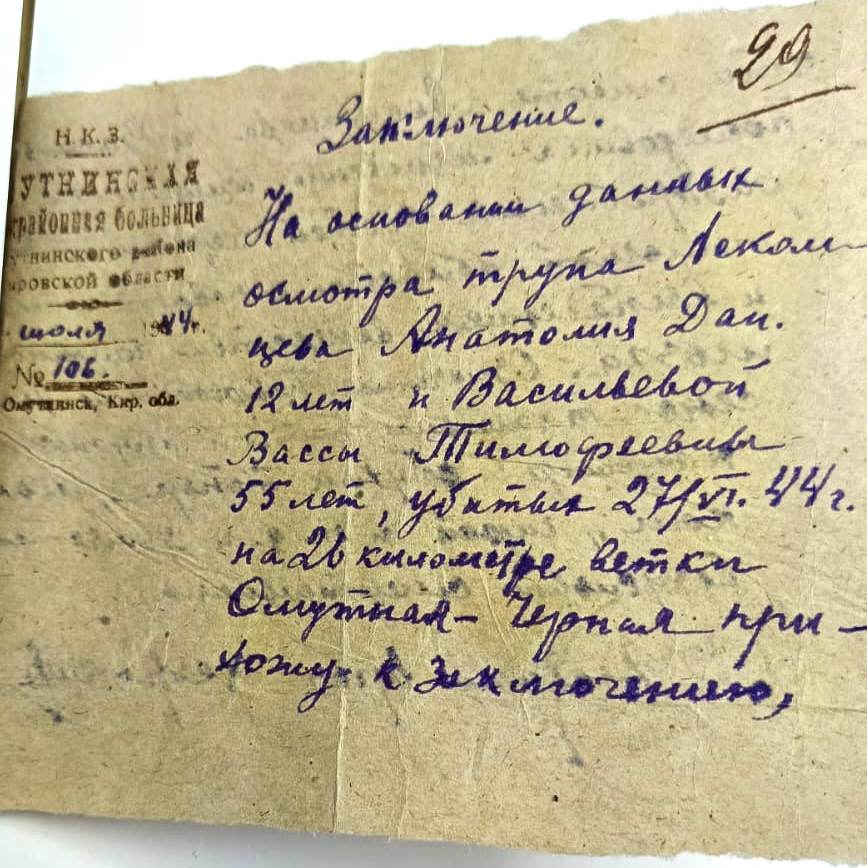 29
Н.К.З.
УТНИНСКАЯ
районная больница
утнинского района
ровской области
июля 1944 г.
№ 106.
Омутнинск, Кир. обл.
Заключение.
На основании данных
осмотра трупа Леком
цева Анатолия Дан.
12 лет и Васильевой
Вассы Тимофеевны
55 лет, убитых 27/VI. 44 г.
на 26 километре ветки
Омутная – Черная при –
хожу к заключению,